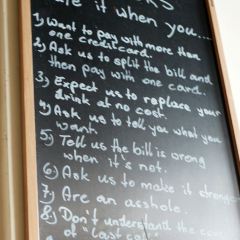 it when you...
1) Want to pay with more than
one credit card.
2) Ask us to split the bill and
then pay with one card.
3) Expect us to replace your
drink at no cost.
4) Ask us to tell you what you
want.
5) Tell us the bill is wrong
when it's not.
6) Ask us to make it stronger
7) Are an asshole.
8) Don't understand the
of "last call"